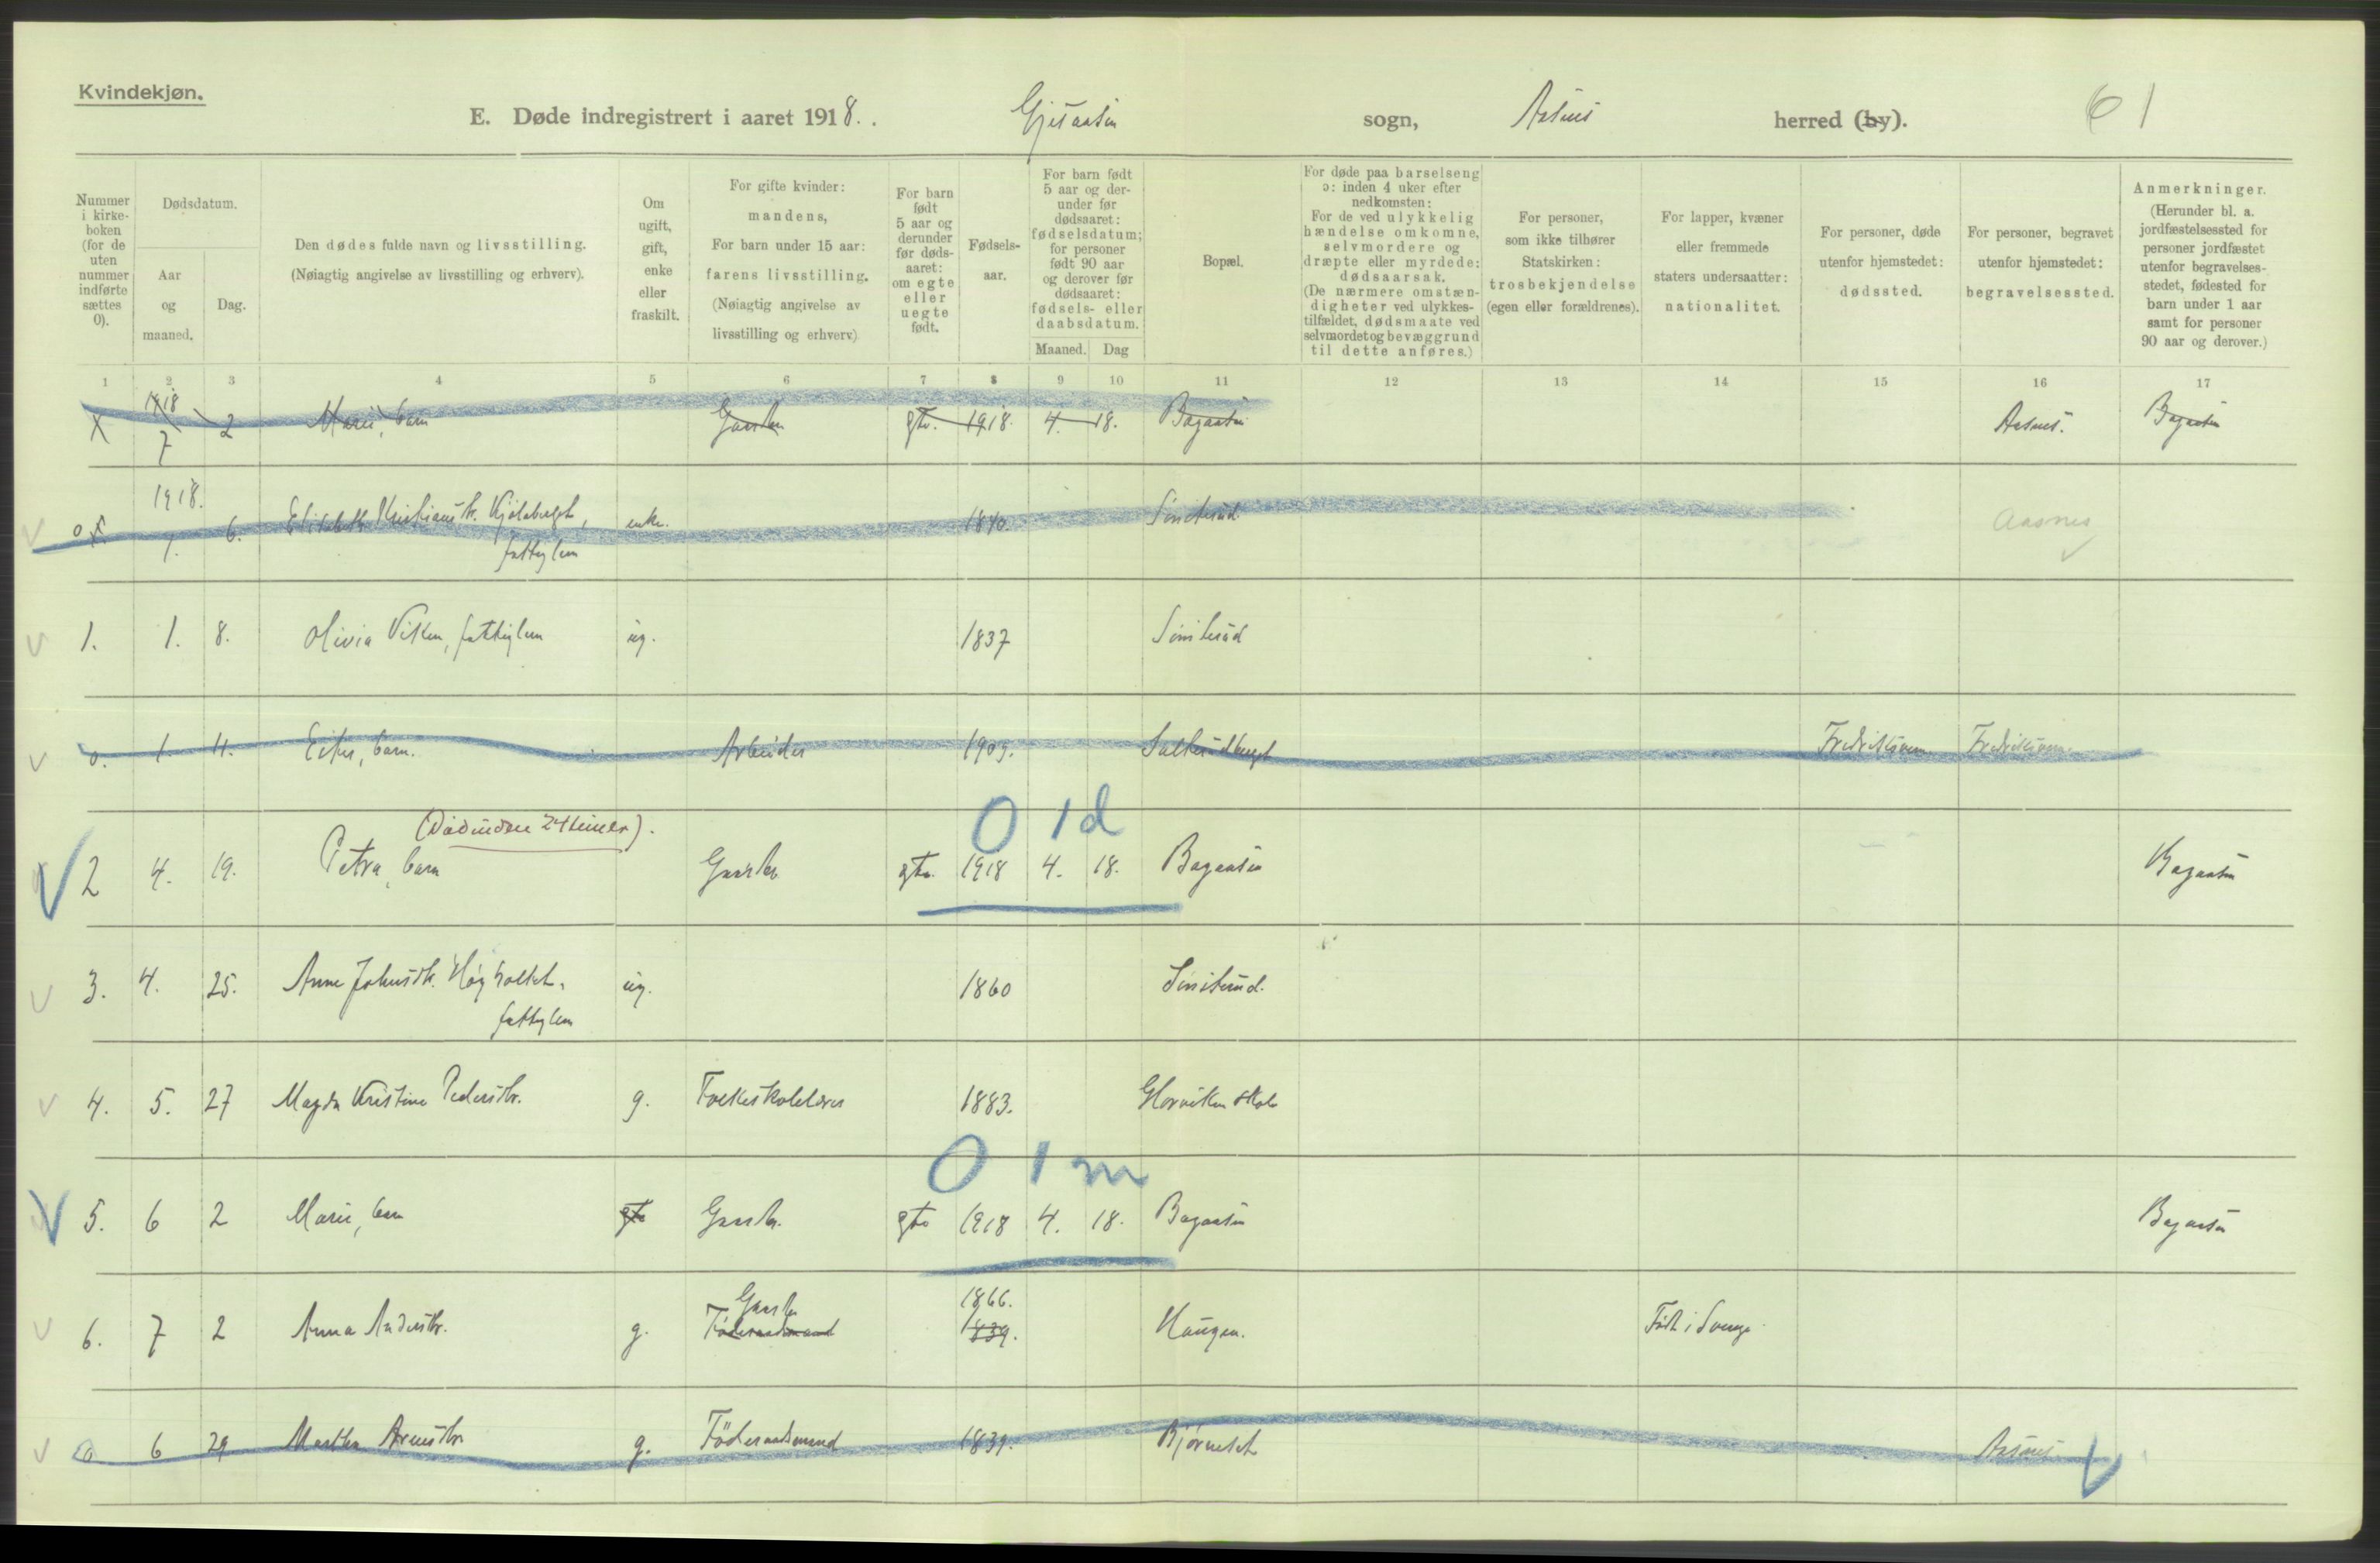 Kvindekjøn.
E. Døde indregistrert i aaret 1918. Gjesaasen sogn, Aasnes herred (by). 61
Nummer i kirkeboken (for de uten nummer indførte sættes 0).
Dødsdatum.
Aar og maaned.
Dag.
Den dødes fulde navn og livsstilling.
(Nøiagtig angivelse av livsstilling og erhverv).
Om ugift, gift, enke eller fraskilt.
For gifte kvinder: mandens,
For barn under 15 aar: farens livsstilling.
(Nøiagtig angivelse av livsstilling og erhverv)
For barn født 5 aar og derunder før dødsaaret: om egte eller uegte født.
Fødselsaar.
For barn født 5 aar og derunder før dødsaaret: fødselsdatum; for personer født 90 aar og derover før dødsaaret: fødsels- eller daabsdatum.
Maaned. Dag
Bopæl.
For døde paa barselseng ɔ: inden 4 uker efter nedkomsten:
For de ved ulykkelig hændelse omkomne, selvmordere og dræpte eller myrdede: dødsaarsak.
(De nærmere omstændigheter ved ulykkestilfældet, dødsmaate ved selvmord et og bevæggrund til dette anføres.)
For personer, som ikke tilhører Statskirken: trosbekjendelse (egen eller forældrenes).
For lapper, kvæner eller fremmede staters undersaatter: nationalitet.
For personer, døde utenfor hjemstedet: dødssted.
For personer, begravet utenfor hjemstedet: begravelsessted.
Anmerkninger.
(Herunder bl. a. jordfæstelsessted for personer jordfæstet utenfor begravelsesstedet, fødested for barn under 1 aar samt for personer 90 aar og derover.)
1 2 3 4 5 6 7 8 9 10 11 12 13 14 15 16 17
1918
X 7 2 Marie, barn Gaardbr. gte. 1918. 4. 18. Bagaasen Aasnes. Bagaasen
1918.
0 1. 6. Elisabeth Kristiansdtr. Kjølaberget, enke. 1840. Sönsterud. Aasnes
fattiglem
1. 1. 8. Olivia Viken, fattiglem ug. 1837 Sönsterud
0. 1. 11. Ester, barn. Arbeider 1909. Fredriksværn Fredriksværn.
(Död inden 24 timer). 0 1 d
2 4. 19. Petra, barn Gaardbr. gte. 1918 4. 18. Bagaasen Bagaasen
3. 4. 25. Anne Johnsdtr. ug. 1860 Sönsterud.
fattiglem
4. 5. 27 Magda Kristine Pedersdtr. g. Folkeskolelærer 1883. skole
0 1 m
5. 6 2 Marie, barn gte Gaardbr. gte 1918 4. 18. Bagaasen Bagaasen
Gaardbr 1866.
6. 7 2 Anna Andersdtr. g. Föderaadsmand 1839. Haugen. Födt i Sverige
0 6 29 Marthea Arnesdtr. g. Föderaadsmand 1839. Bjørneset Aasnes